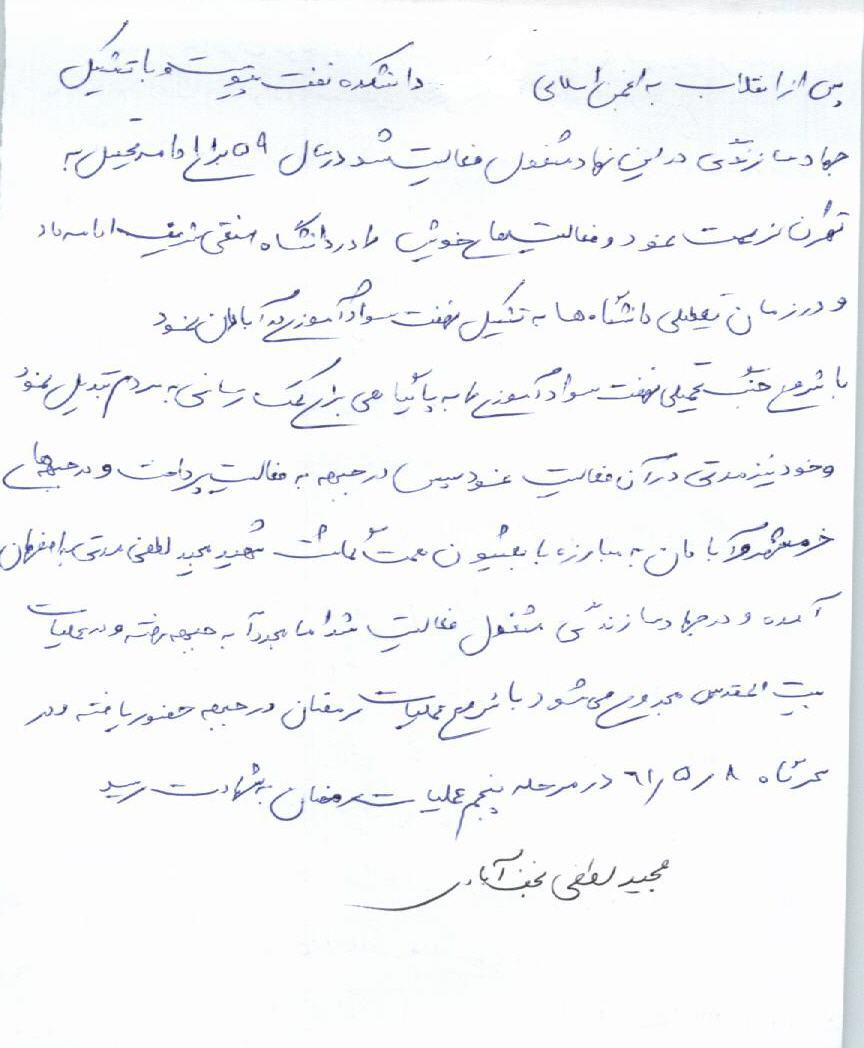 پس از انقلاب به انجمن اسلامی دانشکده نفت پیوست و با تشکیل
جهاد سازندگی در این نهاد مشغول فعالیت شد در سال ۵۹ برای ادامه تحصیل به
تهران عزیمت نمود و فعالیت‌های خویش را در دانشگاه صنعتی شریف ادامه داد
و در زمان تعطیلی دانشگاه ها به تشکیل نهضت سوادآموزی در آبادان نمود
با شروع جنگ تحمیلی نهضت سوادآموزی را به پایگاهی برای کمک رسانی به مردم تبدیل نمود
و خود نیز مدتی در آن فعالیت نمود سپس در جبهه به فعالیت پرداخت و در جبهه های
خرمشهر و آبادان به مبارزه با بعثیون همت گماشت شهید مجید لطفی مدتی به اصفهان
آمده و در جهاد سازندگی مشغول فعالیت شد اما مجدداً به جبهه رفته و در عملیات
بیت المقدس مجروح می شود با شروع عملیات رمضان در جبهه حضور یافته و در
سحرگاه ۶۱/۵/۸ در مرحله پنجم عملیات رمضان به شهادت رسید
مجید لطفی نجف آبادی